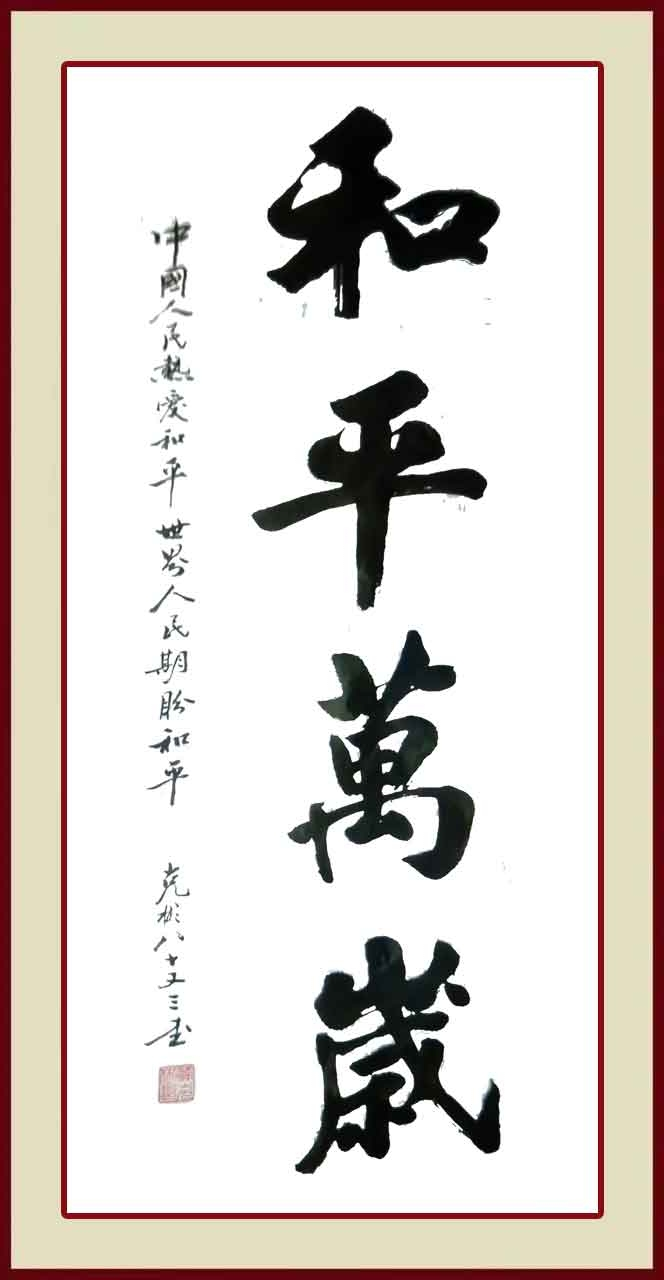 和平萬歲
中國人民熱愛和平世界人民期盼和平
克彬八十又三書